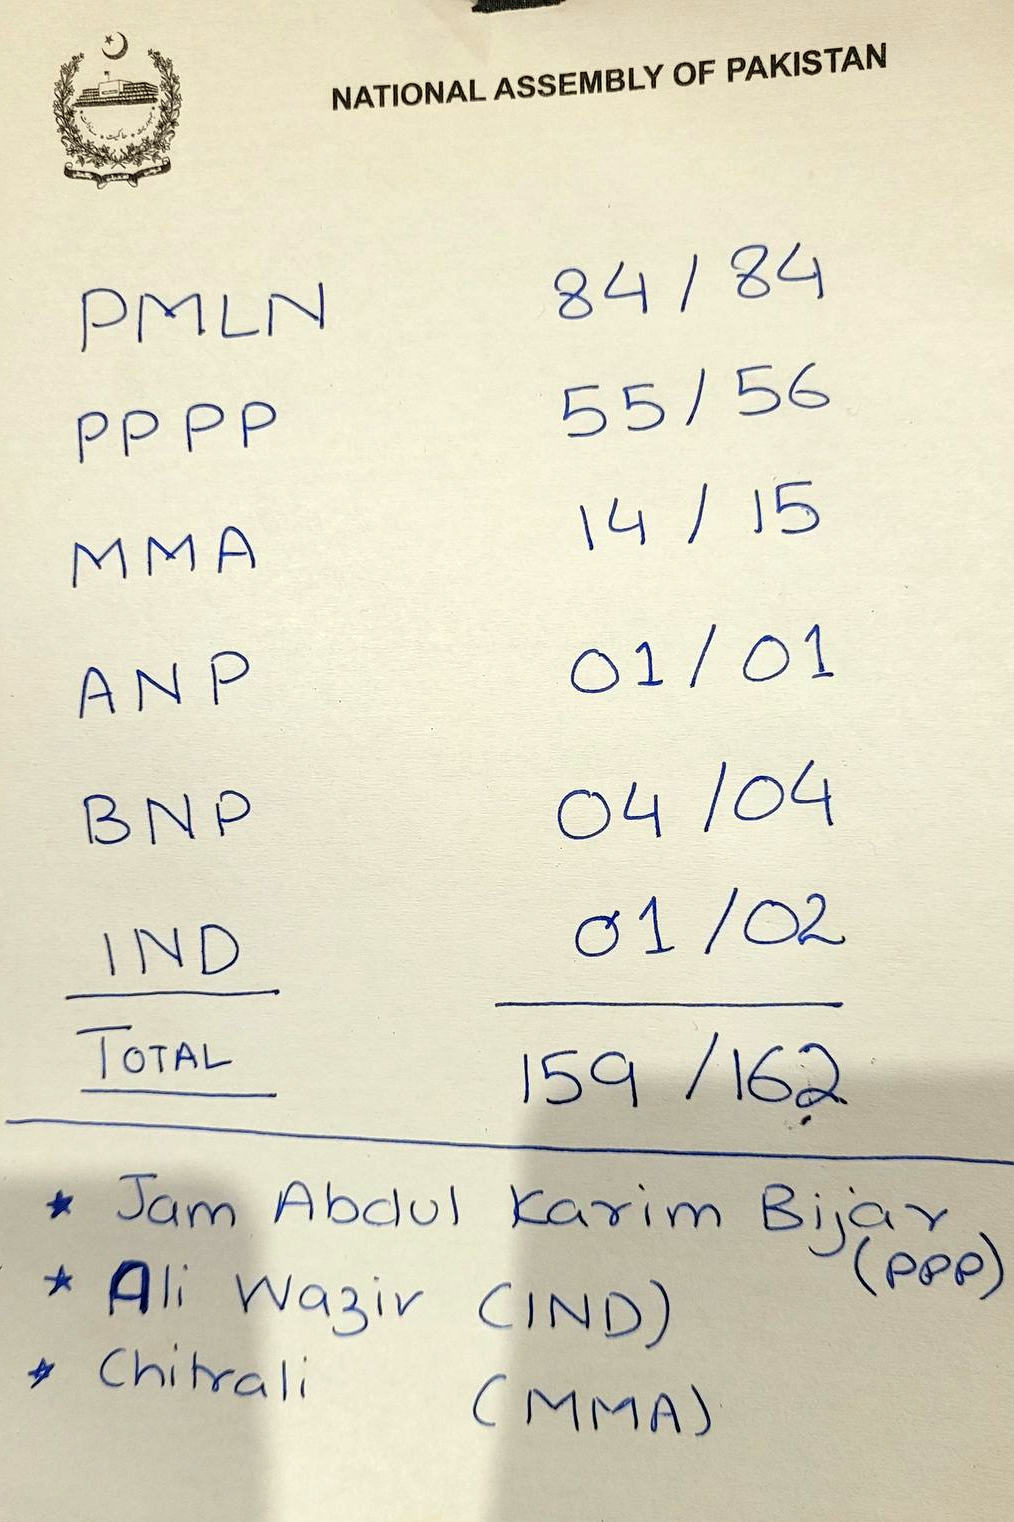 NATIONAL ASSEMBLY OF PAKISTAN
PMLN 84 / 84
PPPP 55 / 56
MMA 14 / 15
ANP 01 / 01
BNP 04 / 04
IND 01 / 02
TOTAL 159 / 162
* Jam Abdul Karim Bijar
(PPP)
* Ali Wazir (IND)
* Chitrali (MMA)